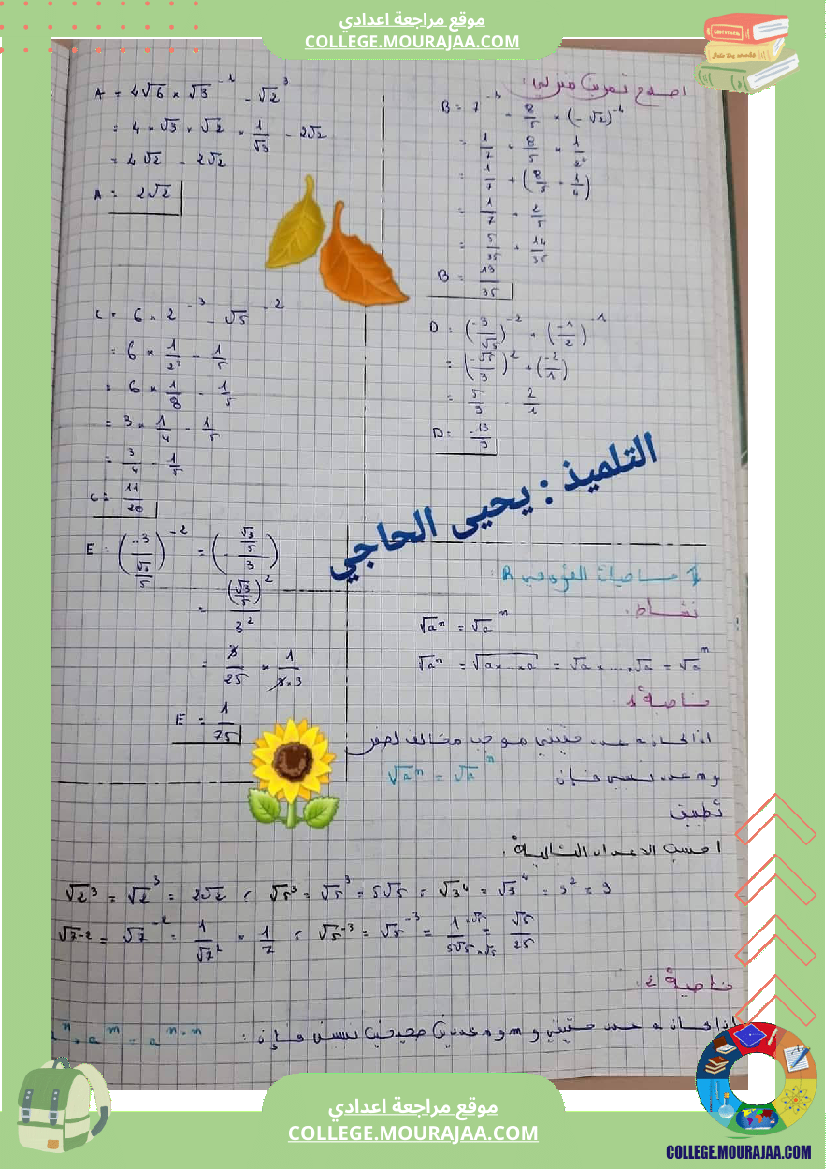 موقع مراجعة اعدادي
COLLEGE.MOURAJAA.COM
اصلاح تمرين منزلي:
A = 4√6 × √3⁻¹ - √2³
= 4 × √3 × √2 × 1/√3 - 2√2
= 4√2 - 2√2
A = 2√2
B = 7⁻¹ + 8/5 × (-√2)⁻⁴
= 1/7 + 8/5 × 1/2²
= 1/7 + (8/5 × 1/4)
= 1/7 + 2/5
= 5/35 + 14/35
B = 19/35
C = 6 × 2⁻³ - √5⁻²
= 6 × 1/2³ - 1/5
= 6 × 1/8 - 1/5
= 3 × 1/4 - 1/5
= 3/4 - 1/5
C = 11/20
= 5/9 - 2/1
D = -13/9
التلميذ : يحيى الحاجي
= 3/25 × 1/3×3
E = 1/75
نشاط:
√aⁿ = √aⁿ
√aⁿ = √a×...×a = √a × ... √a = √aⁿ
خاصية 1
اذا كان a عدد حقيقي موجب مخالف لصفر
و n عدد نسبي فإن √aⁿ = √aⁿ
تطبيق
احسب الاعداد التالية:
√2³ = √2³ = 2√2 ; √5³ = √5³ = 5√5 ; √3⁴ = √3⁴ = 3² = 9
√7⁻² = √7⁻² = 1/√7² = 1/7 ; √5⁻³ = √5⁻³ = 1×√5/5√5×√5 = √5/25
خاصية 2:
اذا كان a عدد حقيقي و m و n عددين صحيحين نسبيين فإن:
موقع مراجعة اعدادي
COLLEGE.MOURAJAA.COM
COLLEGE.MOURAJAA.COM